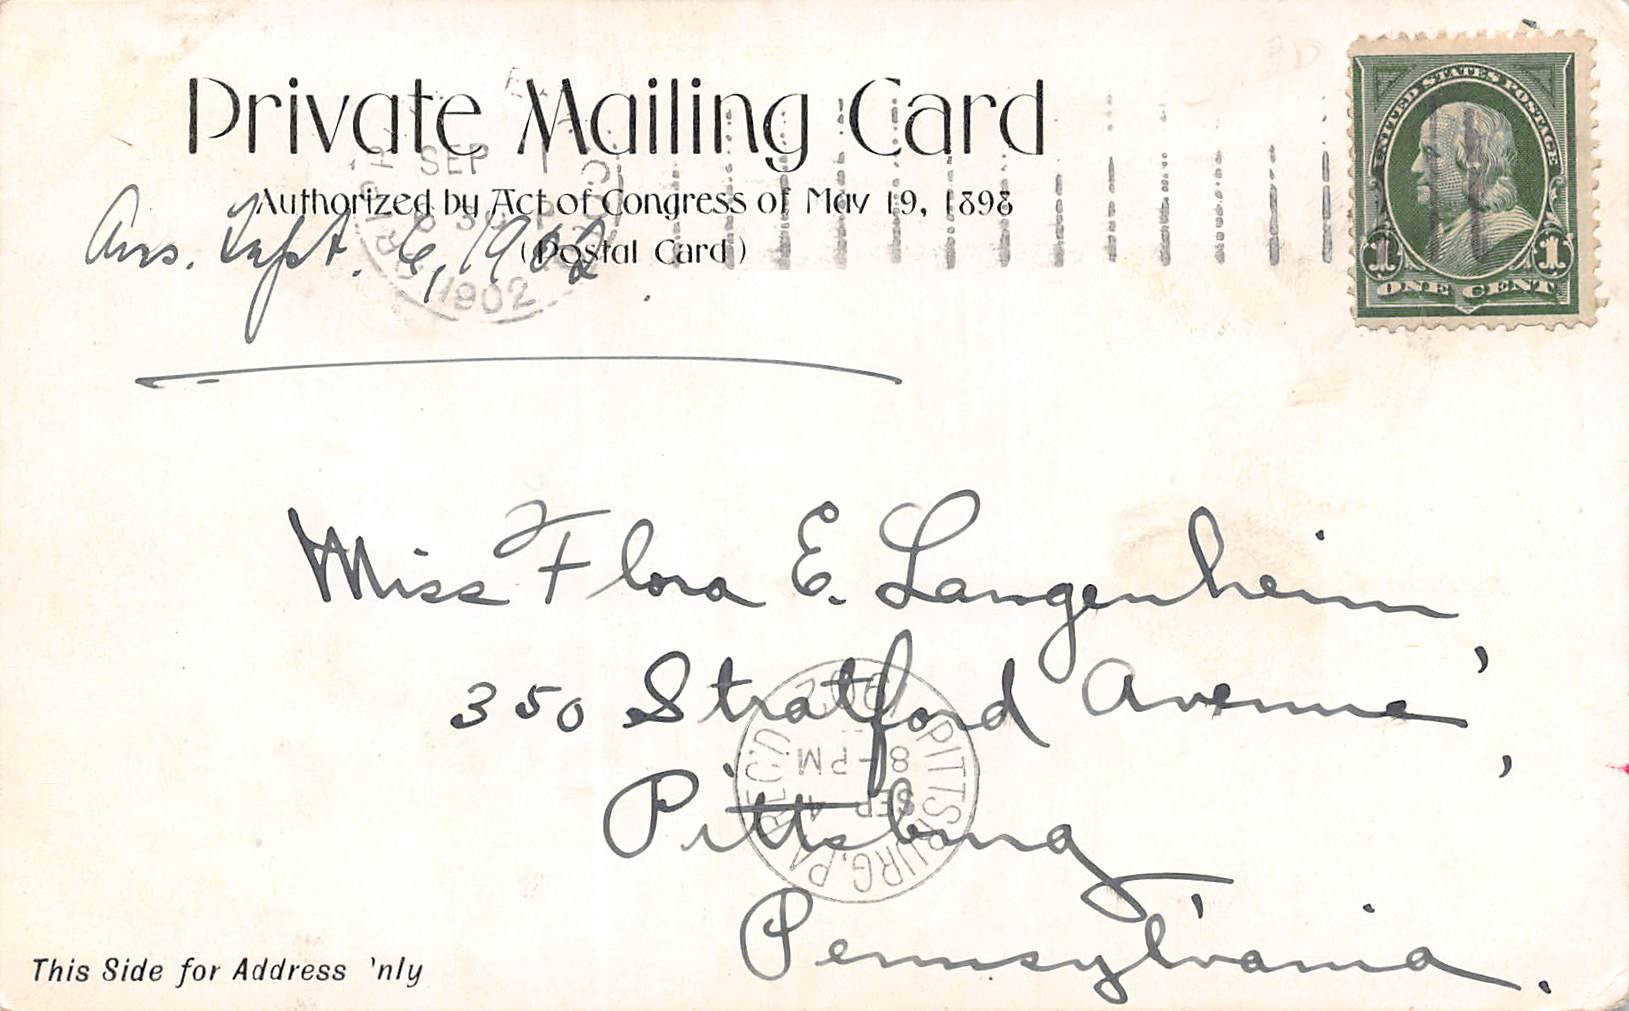 Private Mailing Card
Authorized by Act of Congress of May 19, 1898
(Postal Card)
SEP
8 30 P
1902
Ans. Sept. 6, 1902
UNITED STATES POSTAGE
1 1
ONE CENT
Miss Flora E. Langenheim,
350 Stratford Avenue,
Pittsburg
Pennsylvania.
PITTSBURG, PA. REC'D.
SEP 4
8-PM
1902
This Side for Address 'nly